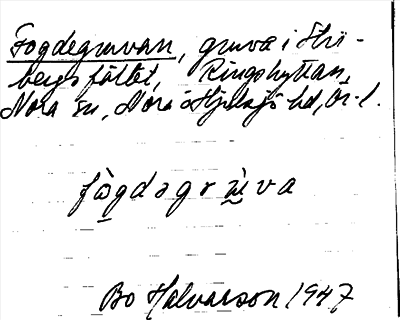 Fogdegruvan, gruva i Stri-
bergsfältet, Ringshyttan,
Nora sn, Nora o Hjulsjö hd, Ör. l.
fògdəgrùva
Bo Halvarson 1947